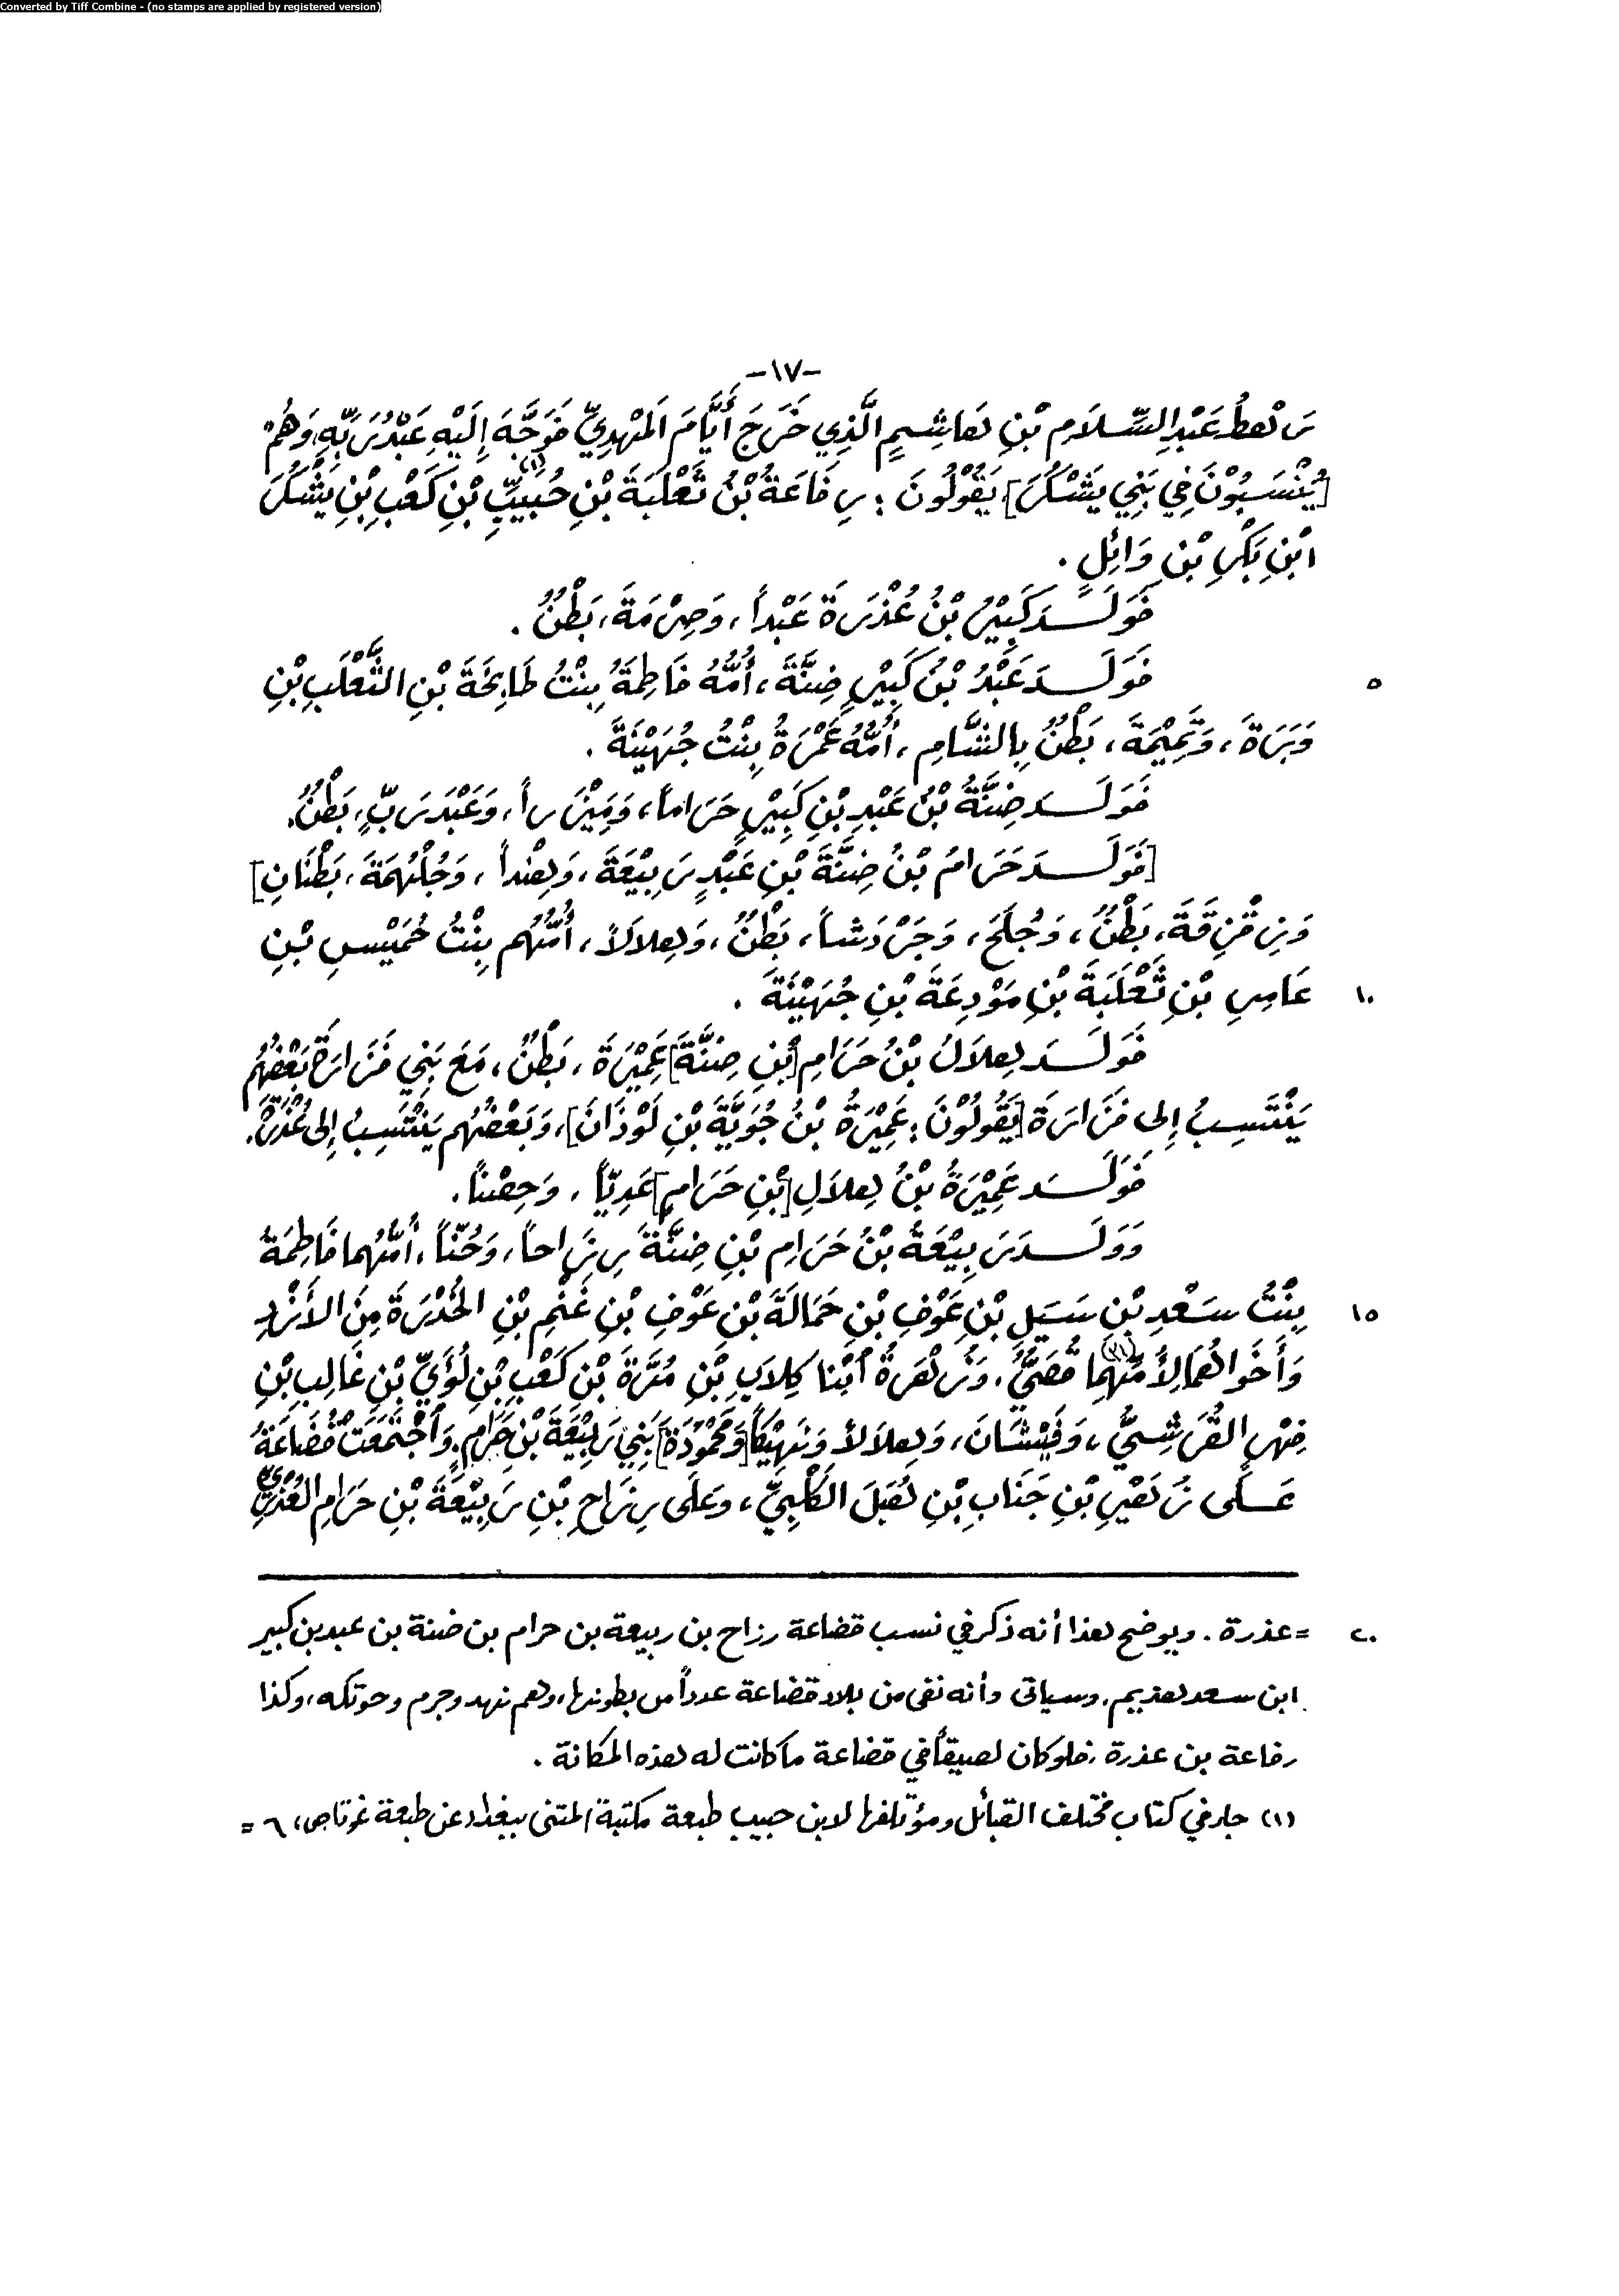 Converted by Tiff Combine - (no stamps are applied by registered version)
-١٧-
رَهْطُ عَبْدِ السَّلَامِ بْنِ هَاشِمٍ الَّذِي خَرَجَ أَيَّامَ المَهْدِيِّ فَوَجَّهَ إِلَيْهِ عَبْدُ رَبِّهِ، وَهُمْ
[يُنْسَبُوْنَ فِي بَنِي يَشْكُرَ] يَقُوْلُونَ : رِفَاعَةُ بْنُ ثَعْلَبَةَ بْنِ حُبَيِّبِ (١) بْنِ كَعْبِ بْنِ يَشْكُرَ
ابْنِ بَكْرِ بْنِ وَائِلٍ .
فَوَلَـــدَ كَبِيْرُ بْنُ عُذْرَةَ عَبْداً، وَصِرْمَةَ، بَطْنٌ .
٥ فَوَلَـــدَ عَبْدُ بْنُ كَبِيْرٍ ضِنَّةَ، أُمُّهُ فَاطِمَةُ بِنْتُ طَابِخَةَ بْنِ الثَّعْلَبِ بْنِ
وَبَرَةَ، وَتَمِيْمَةَ، بَطْنٌ بِالشَّامِ، أُمُّهُ عَمْرَةُ بِنْتُ جُهَيْنَةَ .
فَوَلَـــدَ ضِنَّةُ بْنُ عَبْدِ بْنِ كَبِيْرٍ حَرَاماً، وَمِيْزَراً، وَعَبْدَ رَبٍّ، بَطْنٌ.
[فَوَلَـــدَ حَرَامُ بْنُ ضِنَّةَ بْنِ عَبْدٍ رَبِيْعَةَ، وَهِنْداً، وَجُلْهُمَةَ، بَطْنَانِ]
وَزِقْزِقَةَ، بَطْنٌ، وَجُلَحَ، وَجَرْدَشاً، بَطْنٌ، وَهِلَالاً، أُمُّهُم بِنْتُ حُمَيْسِ بْنِ
١٠ عَامِرِ بْنِ ثَعْلَبَةَ بْنِ مَوْدِعَةَ بْنِ جُهَيْنَةَ .
فَوَلَـــدَ هِلَالُ بْنُ حَرَامِ [بْنِ ضِنَّةَ] عَمِيْرَةَ، بَطْنٌ، مَعَ بَنِي فَزَارَةَ بَعْضُهُم
يَنْتَسِبُ إِلى فَزَارَةَ [يَقُولُوْنَ : عَمِيْرَةُ بْنُ جُوَيَّةَ بْنِ لَوْذَانَ]، وَبَعْضُهُم يَنْتَسِبُ إِلى عُذْرَةَ.
فَوَلَـــدَ عَمِيْرَةُ بْنُ هِلَالِ [بْنِ حَرَامٍ] عَدِيّاً، وَحِصْناً.
وَوَلَـــدَ رَبِيْعَةُ بْنُ حَرَامِ بْنِ ضِنَّةَ رِزَاحاً، وَحُنّاً، أُمُّهُما فَاطِمَةُ
١٥ بِنْتُ سَعْدِ بْنِ سَيَلِ بْنِ عَوْفِ بْنِ حَمَالَةَ بْنِ عَوْفِ بْنِ غَنْمِ بْنِ الخُدْرَةَ مِنَ الأَزْدِ
وَأَخَوَاهُمَا لِأُمِّهِما (٢) قُصَيٌّ، وَزُهْرَةُ ابْنا كِلَابِ بْنِ مُرَّةَ بْنِ كَعْبِ بْنِ لُؤَيِّ بْنِ غَالِبِ بْنِ
فِهْرٍ القُرَشِيِّ، وَفَيْشَانَ، وَهِلَالاً وَنَهِيْكاً [وَمَحْمُوْدَةَ] بَنِي رَبِيْعَةَ بْنِ حَرَامٍ. وَاجْتَمَعَتْ قُضَاعَةُ
عَـــلَى زُهَيْرِ بْنِ جَنَابِ بْنِ هُبَلَ الكَلْبِيِّ، وعَلَى رِزَاحِ بْنِ رَبِيْعَةَ بْنِ حَرَامِ العُذْرِيِّ
٢٠ = عذرة. ويوضح هذا أنه ذكر في نسب قضاعة رزاح بن ربيعة بن حرام بن ضنة بن عبد بن كبير
ابن سعد هذيم، وسياتى وأنه نفى من بلاد قضاعة عدداً من بطونها، وهم نهد وجرم وحوتكه، وكذا
رفاعة بن عذرة، فلو كان لصيقاً في قضاعة ما كانت له هذه المكانة .
(١) جاء في كتاب مختلف القبائل ومؤتلفها لابن حبيب طبعة مكتبة المتنى ببغداد عن طبعة غوتا ص، ٦ =